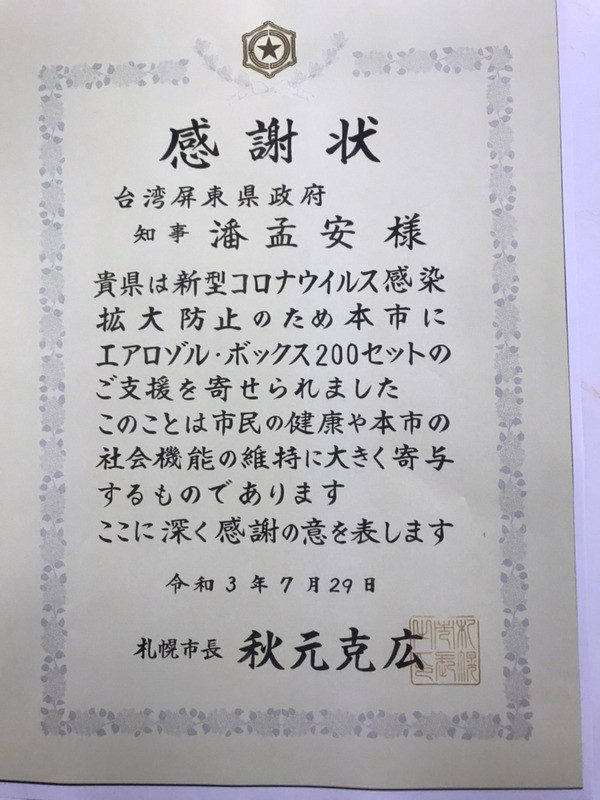 感謝状
台湾屏東県政府
知事 潘孟安様
貴県は新型コロナウイルス感染
拡大防止のため本市に
エアロゾル・ボックス200セットの
ご支援を寄せられました
このことは市民の健康や本市の
社会機能の維持に大きく寄与
するものであります
ここに深く感謝の意を表します
令和3年7月29日
札幌市長 秋元克広
札幌
市長
之印